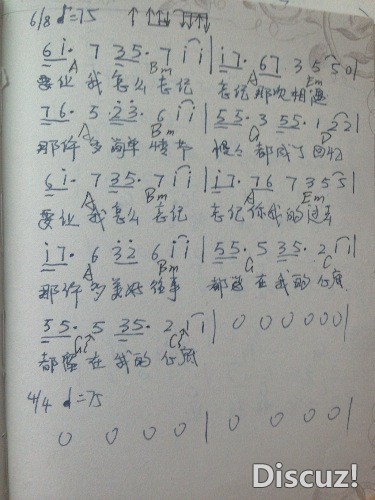 6/8 ♩=75 ↑ ↑↑↓ ↑↓↑↓
6 i· 7 35· 7 i i | i7· 67 3 5 5 0 |
A Bm A Em
要让我怎么忘记 忘记那次相遇
76· 5 23· 6 i i | 55· 3 55· 1 22 |
A Bm G D
那许多简单情节 都成了回忆
6 i· 7 35· 7 i i | i7· 76 7 3 5 5 |
A Bm A Em
要让我怎么忘记 忘记你我的过去
i7· 6 32 6 i i | 55· 5 35· 2 i i |
A Bm G C
那许多美好往事 都留在我的心底
55· 5 35· 2 i i | 0 0 0 0 0 0 |
G C
都留在我的心底
4/4 ♩=75
0 0 0 0 | 0 0 0 0 |
Discuz!